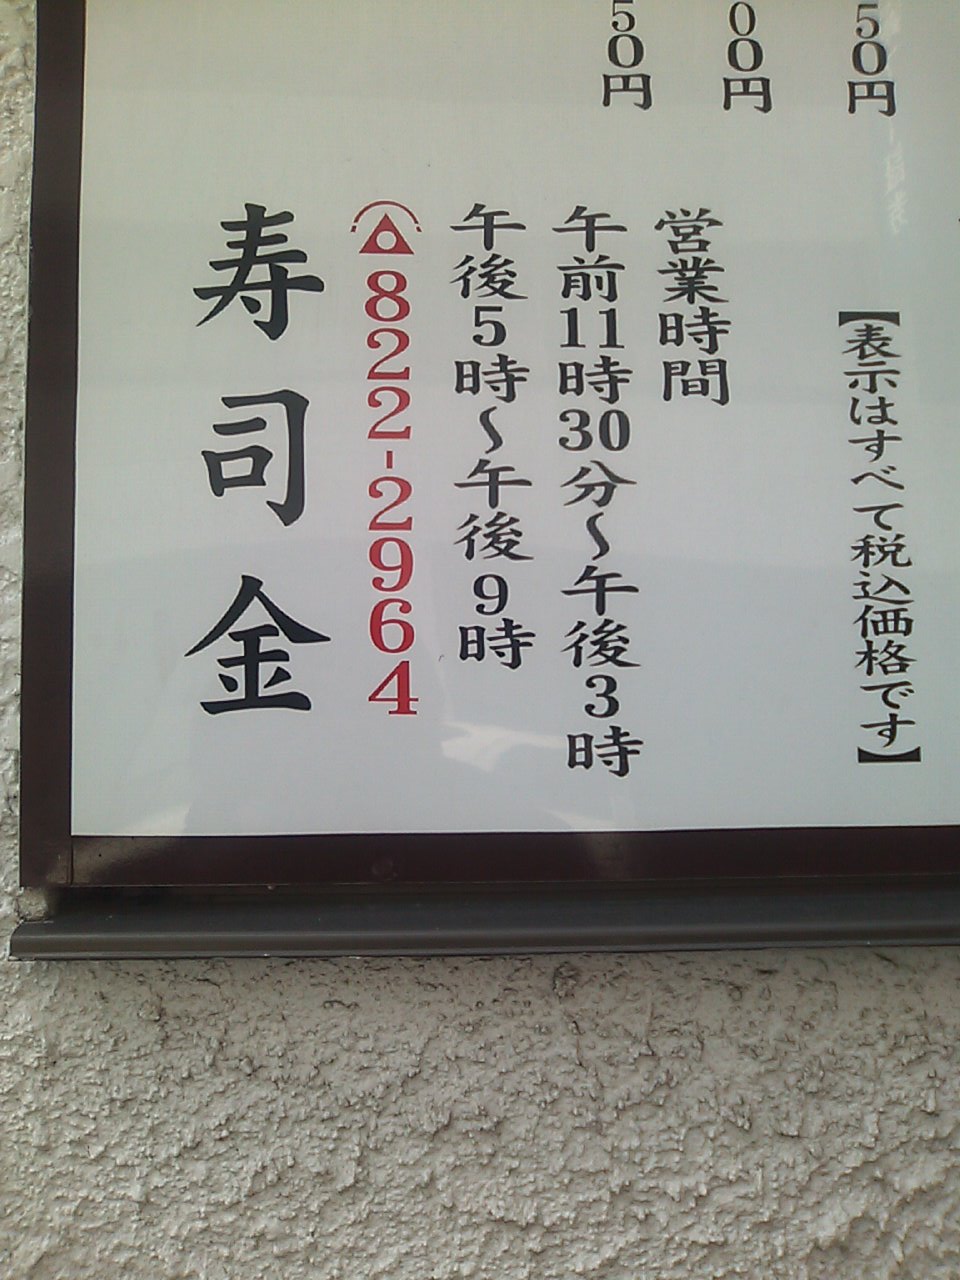 50円
00円
50円
【表示はすべて税込価格です】
営業時間
午前11時30分～午後3時
午後5時～午後9時
822-2964
寿司金